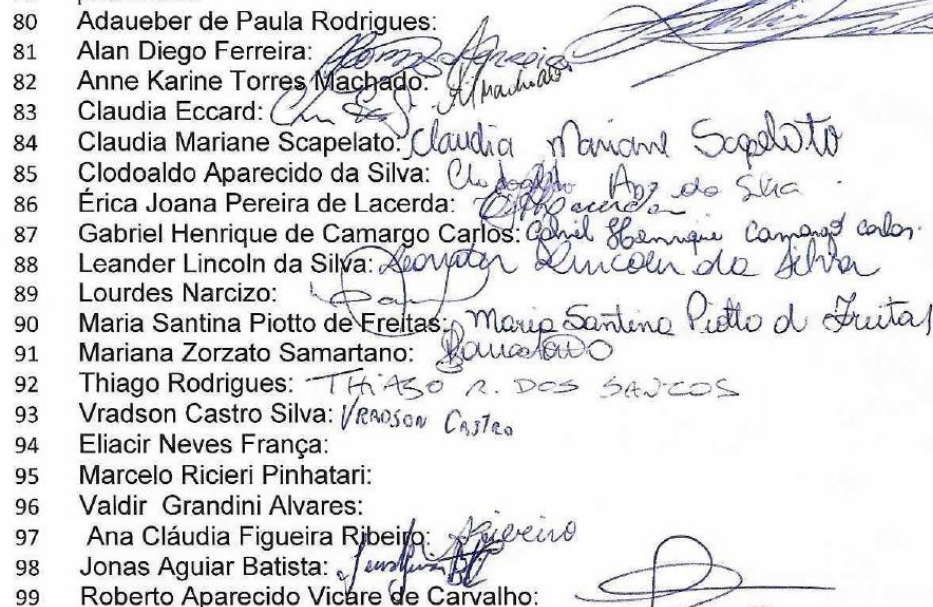 80 Adaueber de Paula Rodrigues:
81 Alan Diego Ferreira:
82 Anne Karine Torres Machado: AMachado
83 Claudia Eccard:
84 Claudia Mariane Scapelato: Claudia Mariane Scapelato
85 Clodoaldo Aparecido da Silva: Clodoaldo Apz da Silva
86 Érica Joana Pereira de Lacerda:
87 Gabriel Henrique de Camargo Carlos: Gabriel Henrique Camargo Carlos
88 Leander Lincoln da Silva: Leander Lincoln da Silva
89 Lourdes Narcizo:
90 Maria Santina Piotto de Freitas: Maria Santina Piotto d Freitas
91 Mariana Zorzato Samartano:
92 Thiago Rodrigues: THIAGO R. DOS SANTOS
93 Vradson Castro Silva: VRADSON CASTRO
94 Eliacir Neves França:
95 Marcelo Ricieri Pinhatari:
96 Valdir Grandini Alvares:
97 Ana Cláudia Figueira Ribeiro: Ribeiro
98 Jonas Aguiar Batista:
99 Roberto Aparecido Vicare de Carvalho: